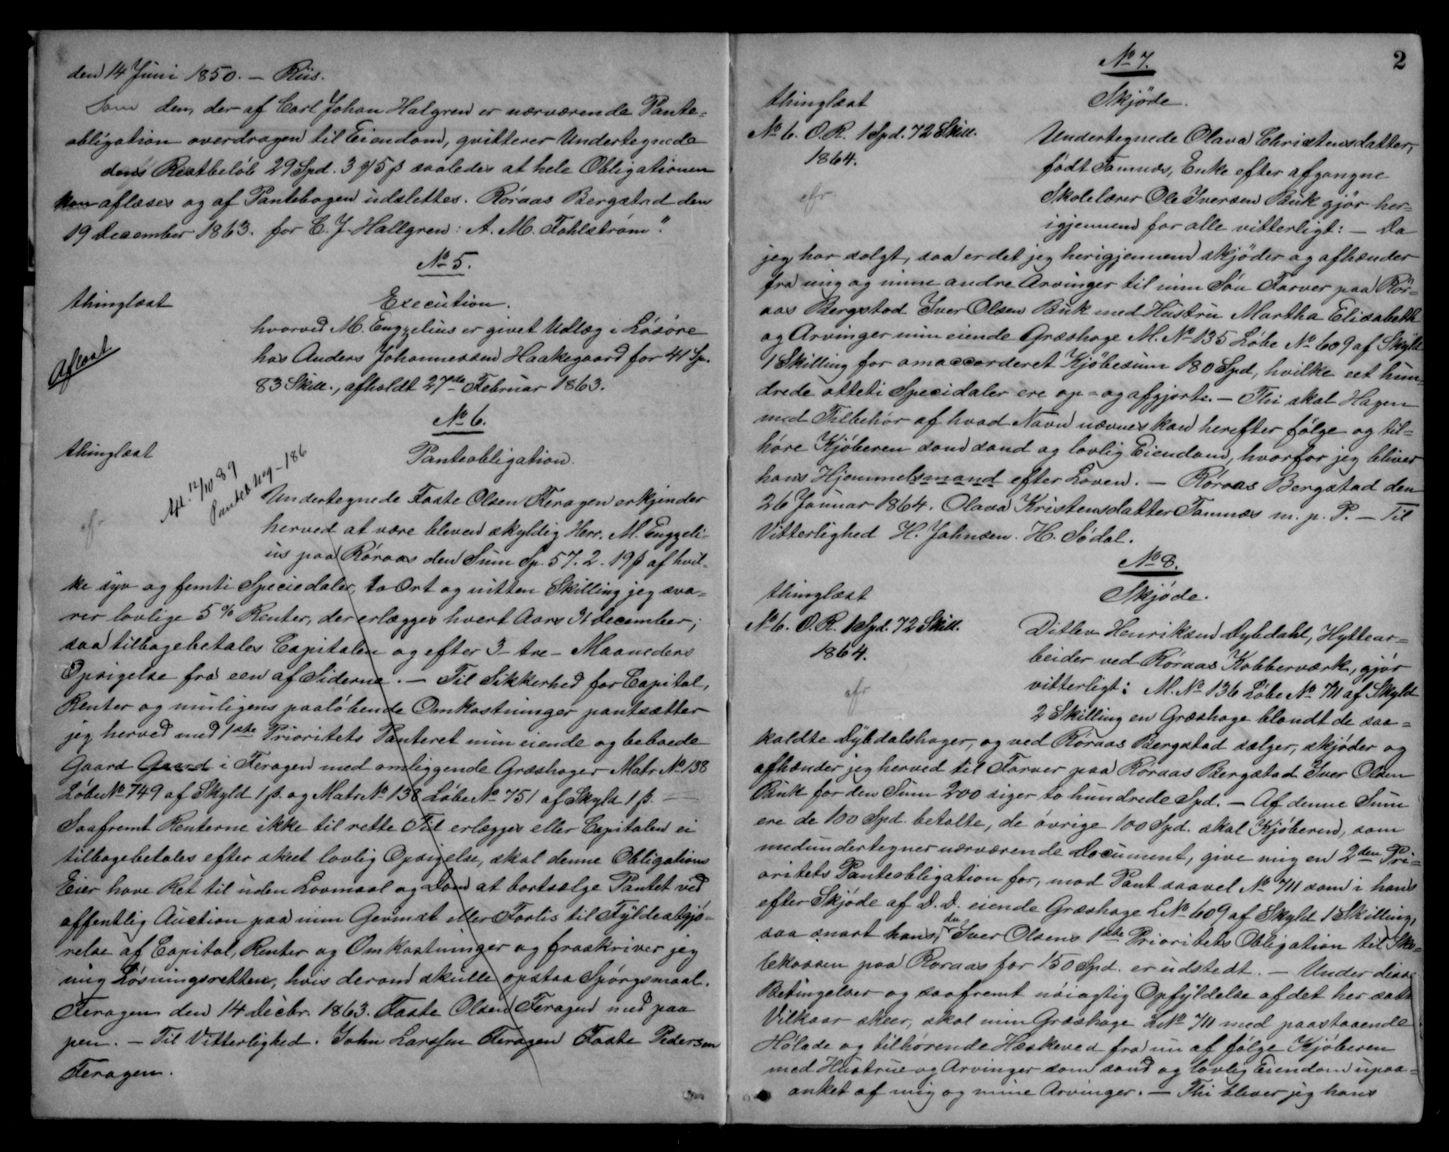 den 14 Juni 1850. – Riis.
Som den, der af Carl Johan Halgren er nærværende Pante-
obligation overdragen til Eiendom, qvitterer Undertegnede
dens Restbeløb 29 Spd. 3 ℳ 5 β saaledes at hele Obligationen
kan aflæses og af Pantebogen udslettes. Røraas Bergstad den
19 December 1863. for C. J. Hallgren: A. M. Fahlstrøm".
No 5.
thinglæst
Execution.
Aflæst
hvorved M. Enggelius er givet Udlæg i Løsøre
hos Anders Johannessen Haakegaard for 41 Sp.
83 Skill., afholdt 27de Februar 1863.
No 6.
thinglæst
Panteobligation.
Afl. 12/10 89
Panteb. No 9 - 186
Undertegnede Faste Olsen Feragen erkjender
herved at være bleven skyldig Herr. M. Enggeli-
us paa Røraas den Sum Sp. 57. 2. 19 β af hvil-
ke syv og femti Speciedaler, to Ort og nitten Skilling jeg sva-
rer lovlige 5 % Renter, der erlægges hvert Aars 31 December;
saa tilbagebetales Capitalen og efter 3 – tre – Maaneders
Opsigelse fra een af Siderne. – Til Sikkerhed for Capital,
Renter og muligens paaløbende Omkostninger pantsætter
jeg herved med 1ste Prioritets Panteret min eiende og beboede
Gaard Gaard i Feragen med omliggende Græshager Matr No 138
Løbe No 749 af Skyld 1 β. og Matr No 138 Løbe No 751 af Skyld 1 β. –
Saafremt Renterne ikke til rette Tid erlægges eller Capitalen ei
tilbagebetales efter skeet lovlig Opsigelse, skal denne Obligations
Eier have Ret til uden Lovmaal og Dom at bortsælge Pantet ved
offentlig Auction paa min Gevinst eller Forlis til Fyldestgjø-
relse af Capital, Renter og Omkostninger og fraskriver jeg
mig Løsningsretten, hvis derom skulle opstaa Spørgsmaal.
Feragen den 14 Decbr. 1863. Faste Olsen Feragen med paa
pen. – Til Vitterlighed. John Larssen Feragen Faste Pedersen
Feragen.
2
No 7.
thinglæst
Skjøde.
No 6. O. R. 1 Spd. 72 Skill.
1864.
Undertegnede Olava Christensdatter,
født Tamnæs, Enke efter afgangne
Skolelærer Ole Iversen Buk gjør her-
igjennem for alle vitterligt: – Da
jeg har solgt, saa er det jeg herigjennem skjøder og afhænder
fra mig og mine andre Arvinger til min Søn Farver paa Rør-
aas Bergstad Iver Olsen Buk med Hustru Martha Elisabeth
og Arvinger min eiende Græshage M. No 135 Løbe No 609 af Skyld
1 Skilling for omaccorderet Kjøbesum 180 Spd, hvilke eet hun-
drede otteti Specidaler ere op- og afgjorte. – Thi skal Hagen
med Tilbehør af hvad Navn nævnes kan herefter følge og til-
høre Kjøberen som sand og lovlig Eiendom, hvorfor jeg bliver
hans Hjemmelsmand efter Loven. – Røraas Bergstad den
26 Januar 1864. Olava Kristensdatter Tamnæs m. p. P. – Til
Vitterlighed H. Johnsen. H. Sødal.
No 8.
thinglæst
Skjøde.
No 6. O. R. 1 Spd. 72 Skill.
1864.
Ditlev Henriksen Dybdahl, Hyttear-
beider ved Røraas Kobberværk, gjør
vitterligt: M. No 136 Løbe No 711 af Skyld
2 Skilling en Græshage blandt de saa-
kaldte Dybdalshager, og ved Røraas Bergstad sælger, skjøder og
afhænder jeg herved til Farver paa Røraas Bergstad Iver Olsen
Buk for den Sum 200 siger to hundrede Spd. – Af denne Sum
ere de 100 Spd. betalte, de øvrige 100 Spd. skal Kjøberen, som
medundertegner nærværende Document, give mig en 2den Pri-
oritets Panteobligation for, mod Pant saavel No 711 som i hans
efter Skjøde af D. D. eiende Græshage L No 609 af Skyld 1 Skilling,
saa snart hans, Iver Olsens 1ste Prioritets Obligation til Sko-
lekassen paa Røraas for 150 Spd. er udstedt. – Under disse
Betingelser og saafremt nøiagtig Opfyldelse af det her satte
Vilkaar skeer, skal min Græshage L No 711 med paastaaende
Hølade og tilhørende Hæskeved fra nu af følge Kjøberen
med Hustrue og Arvinger som sand og lovlig Eiendom upaa-
anket af mig og mine Arvinger. – Thi bliver jeg hans